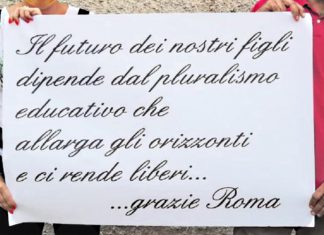 Il futuro dei nostri figli
dipende dal pluralismo
educativo che
allarga gli orizzonti
e ci rende liberi...
...grazie Roma